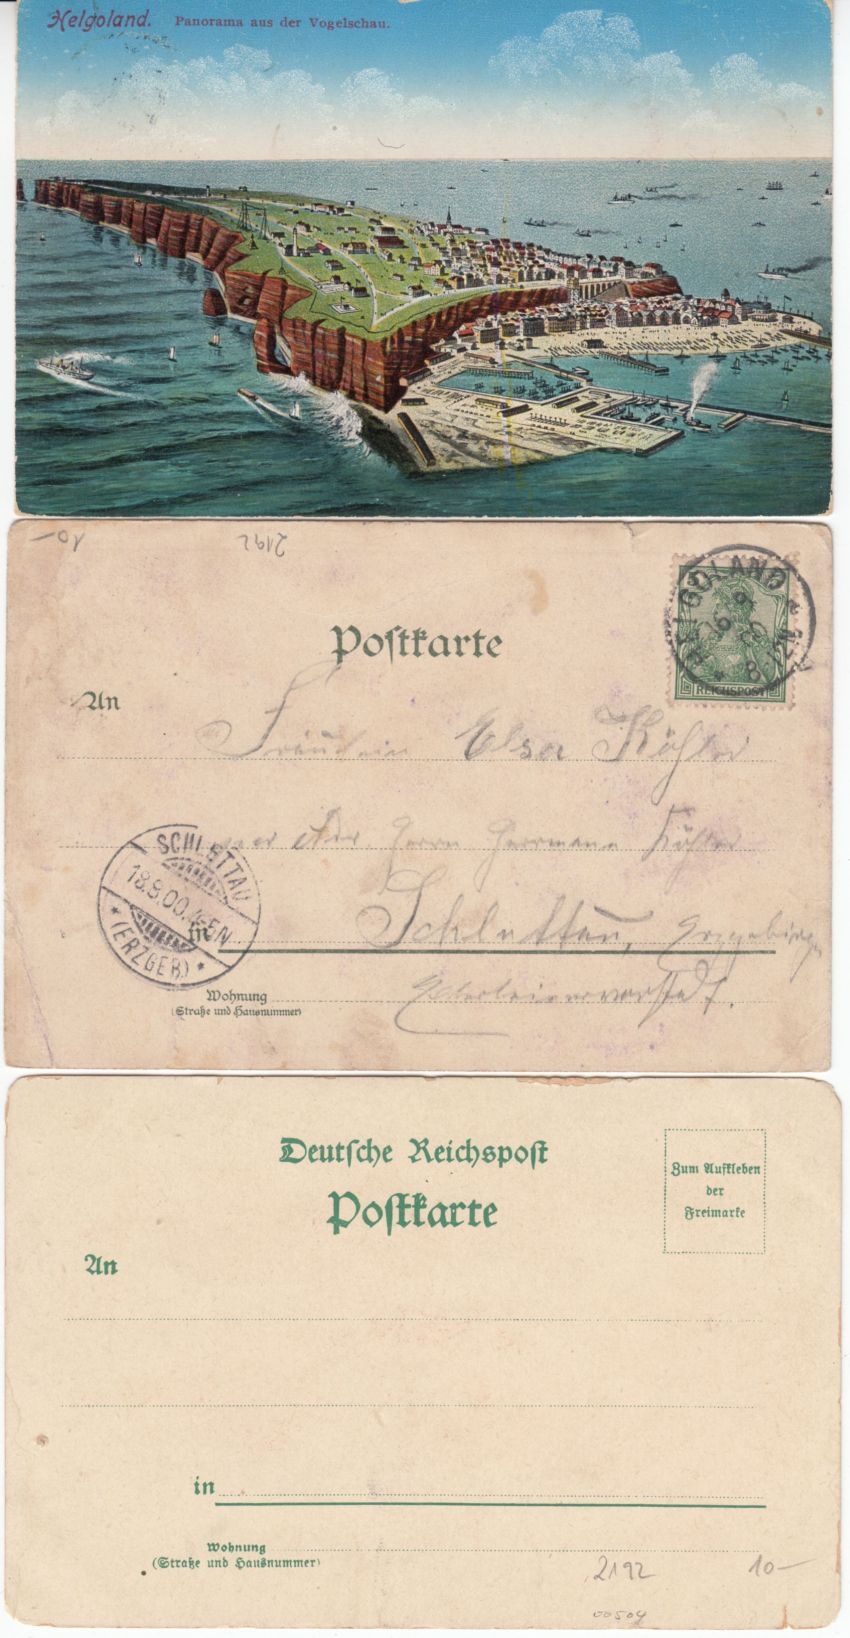 Helgoland. Panorama aus der Vogelschau.
10.-
2192
Postkarte
HELGOLAND
REICHSPOST
An
Fräulein Elsa Köhler
Herrn Herrmann Köhler
SCHLETTAU
18.8.00.
* (ERZGEB.) *
in Schlettau, Erzgebirge
Wohnung
(Straße und Hausnummer)
Deutsche Reichspost
Postkarte
Zum Aufkleben
der
Freimarke
An
in
Wohnung
(Straße und Hausnummer)
2192 10-
00504